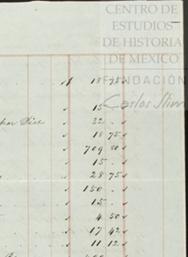 CENTRO DE
ESTUDIOS
DE HISTORIA
DE MEXICO
FUNDACIÓN
Carlos Slim
18 75
15
22
18 75
709 50
15
28 75
150
15
4 50
17 42
11 12